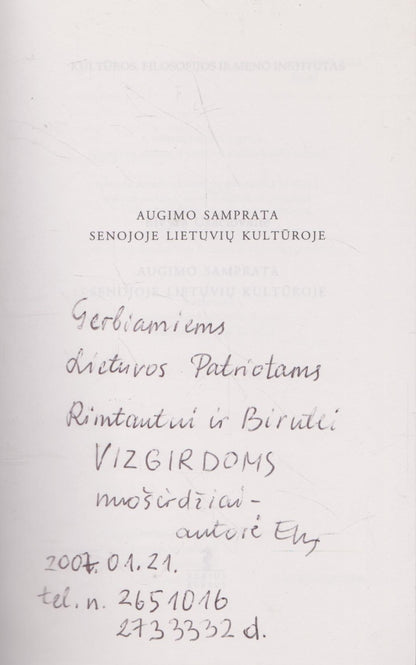 KULTŪROS, FILOSOFIJOS IR MENO INSTITUTAS
AUGIMO SAMPRATA
SENOJOJE LIETUVIŲ KULTŪROJE
AUGIMO SAMPRATA
SENOJOJE LIETUVIŲ KULTŪROJE
Gerbiamiems
Lietuvos Patriotams
Rimtautui ir Birutei
VIZGIRDOMS
nuoširdžiai –
autorė
2007.01.21.
tel. n. 2651016
2733332 d.